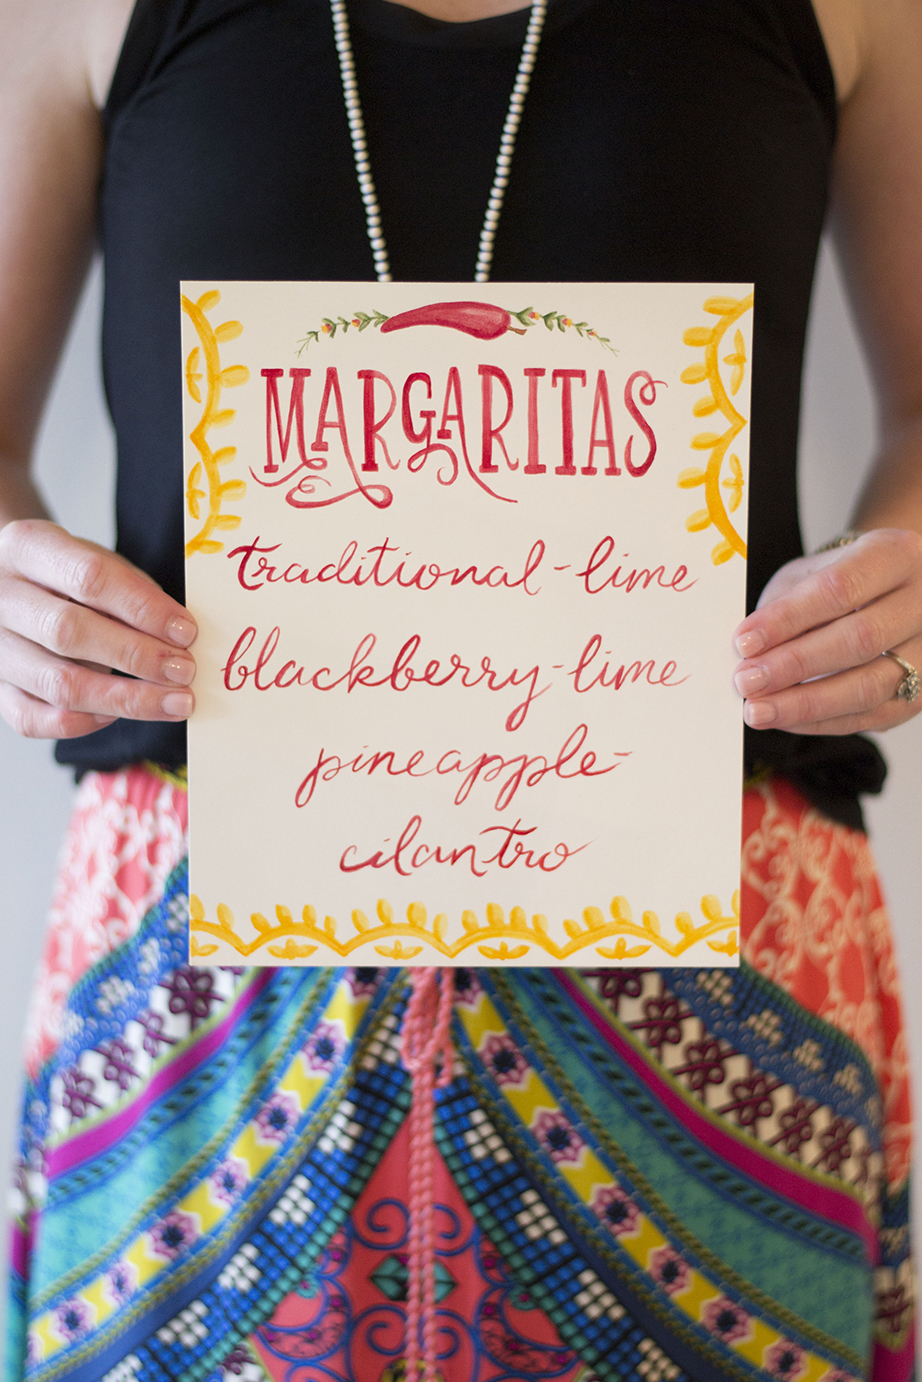 MARGARITAS
traditional-lime
blackberry-lime
pineapple-
cilantro